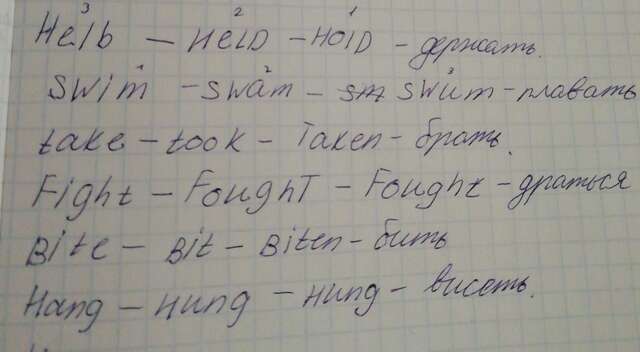 3 2 1
Helb – HelD – HOlD – держать.
1 2 3
SWim – SWam – SWum – плавать
take – took – Taken – брать.
Fight – FoughT – Fought – драться
Bite – Bit – Biten – бить
Hang – Hung – Hung – висеть.